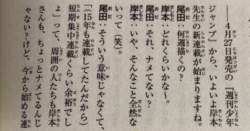 ――4月27日発売の「週刊少年
ジャンプ」から、いよいよ岸本
先生の新連載が始まりますね。
尾田：何週描くの?
岸本：どれくらいかな～。
尾田：それ、ナメてない?
岸本：いや、そんなこと全然な
いって（笑）。
尾田：そういう意味じゃなくて、
「（15年も連載してたんだから）
短期集中連載くらい余裕でし
ょ」って、周囲の人たちも岸本
さんも、ちょっとナメてるんじ
ゃない?けど、今から始める連